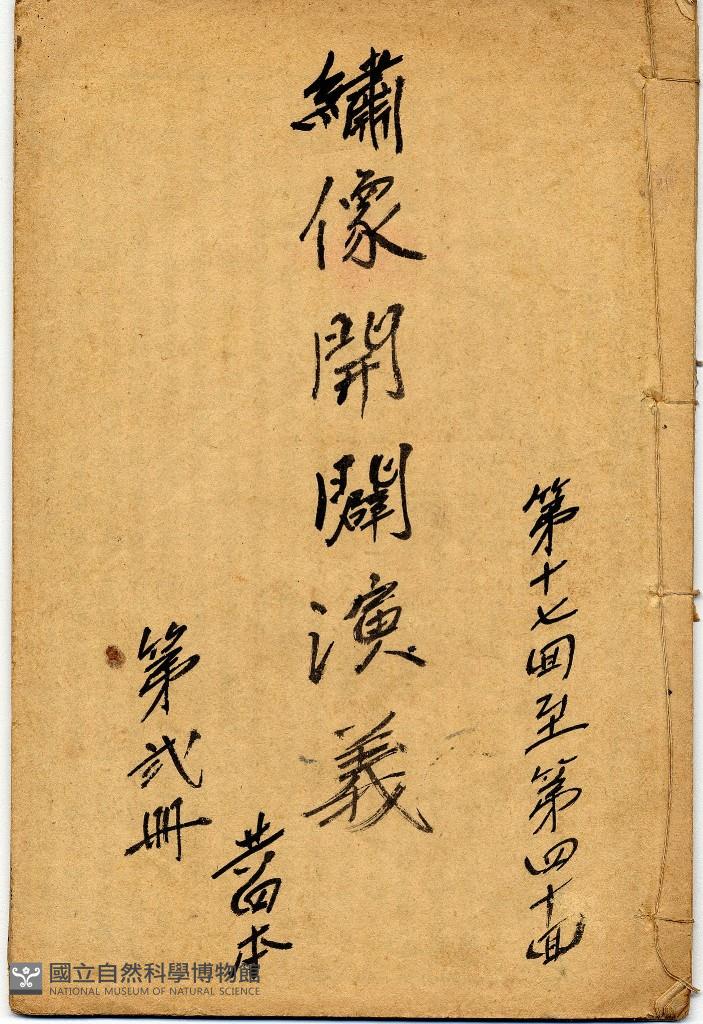 第十七回至第四十回
繡像開闢演義
共四本
第弍冊
國立自然科學博物館
NATIONAL MUSEUM OF NATURAL SCIENCE